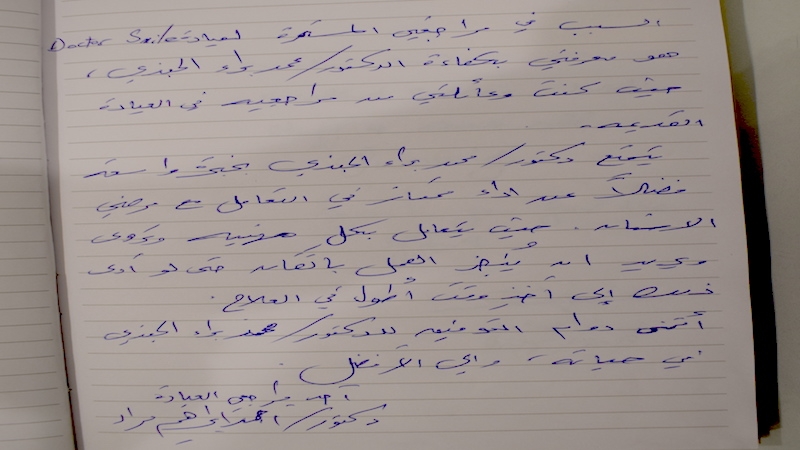 السبب في مراجعتي المستمرة لعيادة Doctor Smile
هو معرفتي بكفاءة الدكتور/ محمد براء الجبذي،
حيث كنت وعائلتي من مراجعيه في العيادة
القديمة.
يتمتع دكتور/ محمد براء الجبذي بخبرة واسعة
فضلاً عن أداء ممتاز في التعامل مع مرضى
الاسنان. حيث يتعامل بكل مهنيه
ويريد ان يُنجز العمل باتقان حتى لو أدى
ذلك إلى أخذ وقت أطول في العلاج.
أتمنى دوام التوفيق للدكتور/ محمد براء الجبذي
في حياته، وإلى الأفضل.
أحد مراجعي العيادة
دكتور/ ابراهيم مراد